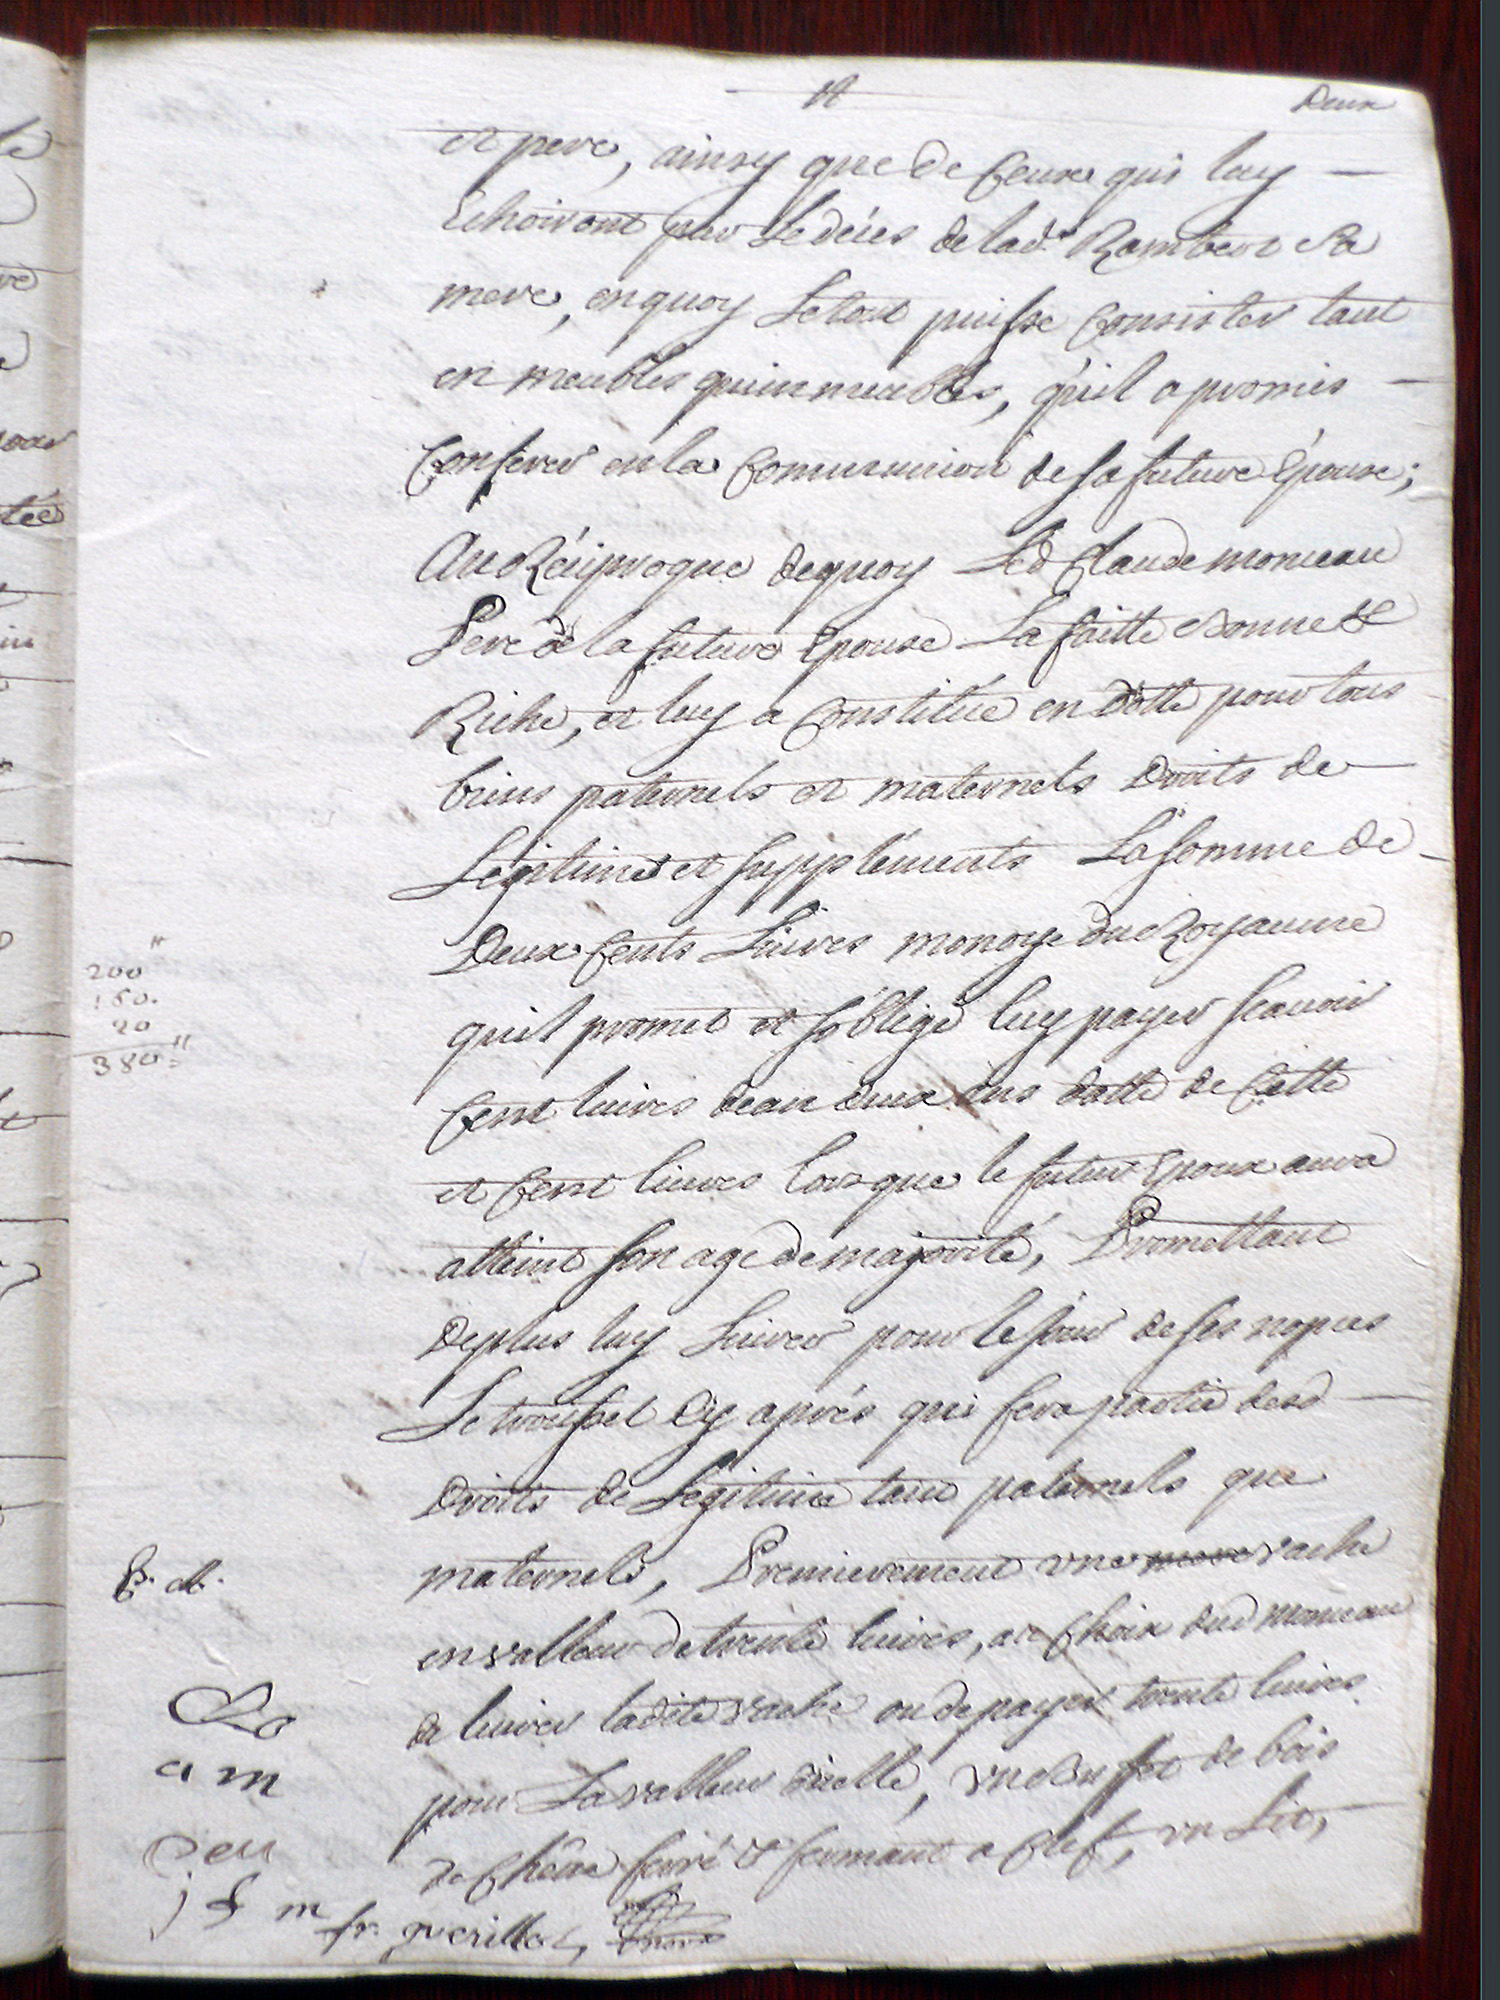 Deux
et pere, ainsy que de Ceux qui luy
Echoiront par Le décès de lad.e Rambert Sa
mere, en quoy Le tout puisse Consister tant
en meubles qu'immeubles, qu'il a promis
Conferer en la Communion de sa future Epouse;
Au Réciproque de quoy Led Claude monceau
Pere de la future Epouse La faitte bonne &
Riche, et luy a Constitué en dotte pour tous
biens paternels et maternels Droits de
Légitime et suppléments La somme de
Deux Cents Livres monoye du Royaume
qu'il promet et s'oblige luy payer scavoir
Cent livres dans deux ans datte de Cette
et Cent livres lorsque le futur Epoux aura
atteint son age de majorité, Promettant
De plus luy Livrer pour le jour de ses nopces
Le trousset Cy après qui fera partie desd
Droits de Légitime tant paternels que
maternels, Premierement une vache
en valleur de trente livres, au Choix dud Monceau
de livrer ladite vache ou de payer trente livres
pour La valleur d'icelle, un Buffet de bois
de Chêne ferré & fermant a Clef, un Lit,
200 "
150.
20
380 "
am
j f m
fr. guerillot,